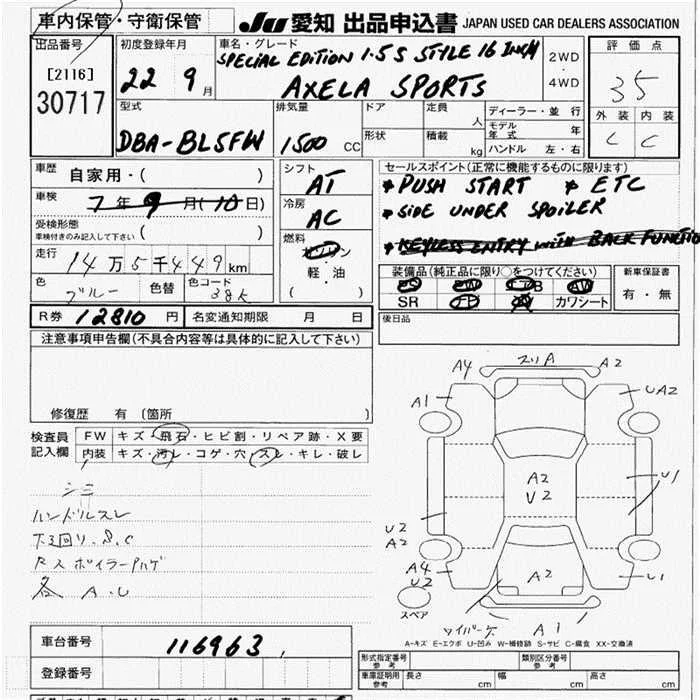 車内保管・守衛保管
JU 愛知 出品申込書 JAPAN USED CAR DEALERS ASSOCIATION
出品番号
[2116]
30717
初度登録年月
22 9 月
車名・グレード
SPECIAL EDITION 1.5 S STYLE 16 INCH
AXELA SPORTS
2WD
・
4WD
評価点
35
外装 内装
C C
型式
DBA-BL5FW
排気量
1500 CC
ドア
形状
定員 人
積載 kg
ディーラー・並行
モデル年式 年
ハンドル 左・右
車歴
自家用・( )
車検
7年9月(10日)
受検形態
車検付きのみ記入して下さい ( )
走行
14万5千449km
色
ブルー
色替
色コード
38K
シフト
AT
冷房
AC
燃料
ガソリン
・
軽・油
( )
セールスポイント(正常に機能するものに限ります)
* PUSH START * ETC
* SIDE UNDER SPOILER
* KEYLESS ENTRY with BACK FUNCTIO
装備品(純正品に限り○をつけてください)
PS PW エアB AW
SR カワシート
新車保証書
有・無
後日品
R券 12810 円
名変通知期限 月 日
注意事項申告欄(不具合内容等は具体的に記入して下さい)
修復歴 有(箇所 )
検査員
記入欄
FW キズ・飛石・ヒビ割・リペア跡・X要
内装 キズ・汚レ・コゲ・穴・スレ・キレ・破レ
シミ
ハンドルスレ
下回り.S.C
各 A.U
A4 スリA A2
A1 UA2
A2
V2
U1
U2
A2
A4
U2
A2
U1
スペア
A1
A-キズ E-エクボ U-凹み W-補修跡 S-サビ C-腐食 XX-交換済
車台番号
116963
登録番号
形式指定番号
参考
類別区分番号
参考
車庫証明用
参考
長さ cm
幅 cm
高さ cm